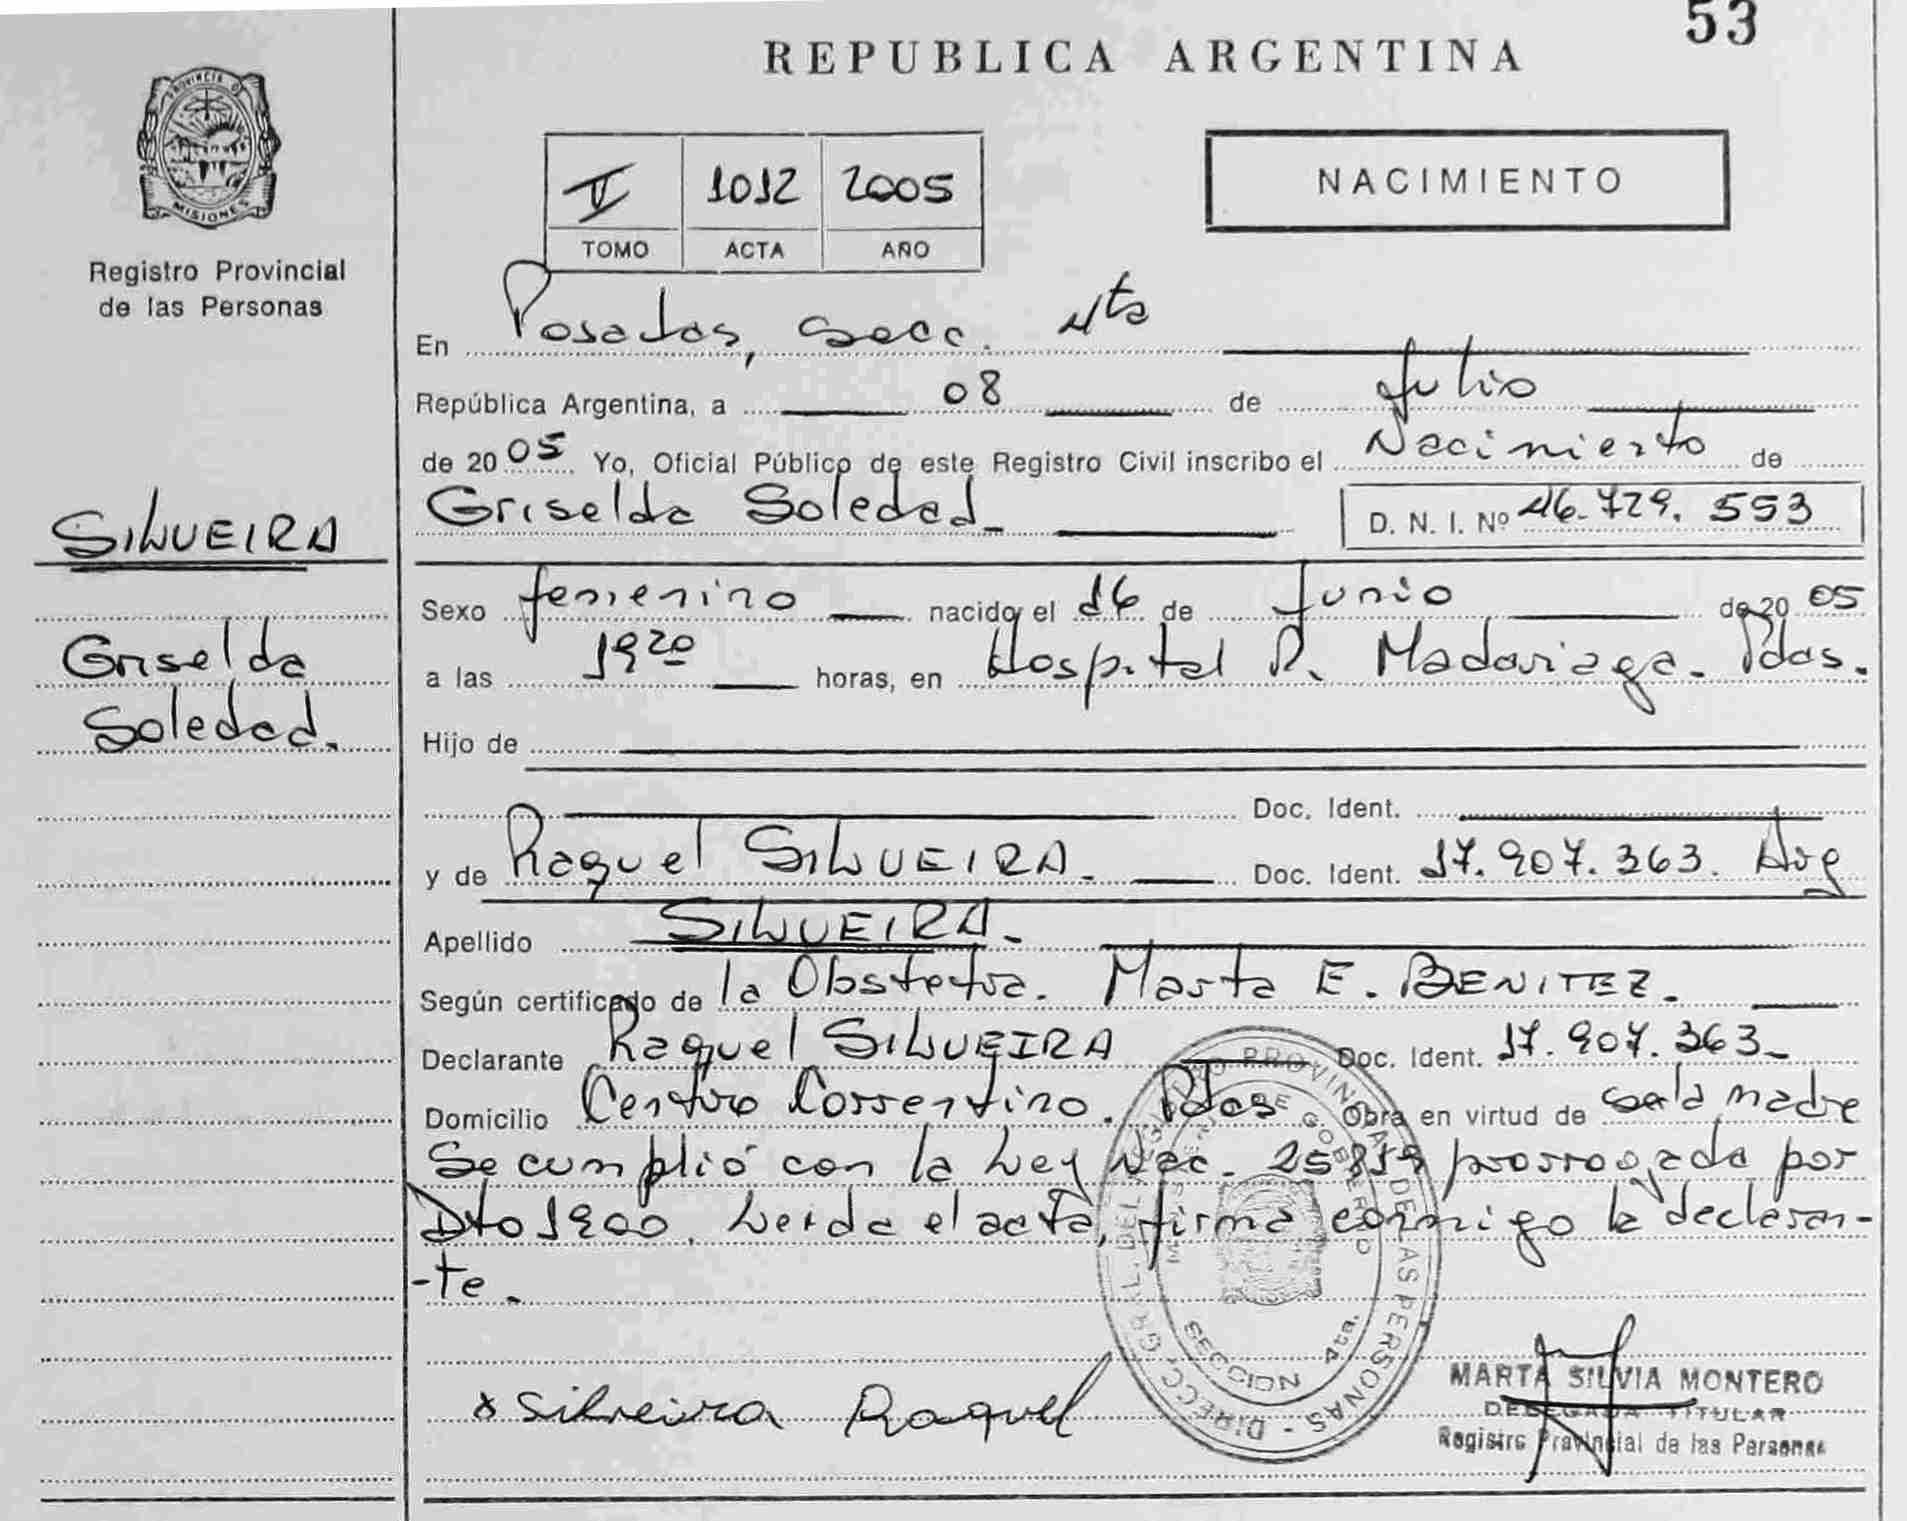 53
REPUBLICA ARGENTINA
PROVINCIA DE
MISIONES
Registro Provincial
de las Personas
V 1012 2005
TOMO ACTA AÑO
NACIMIENTO
En Posadas, Secc. 4ta
República Argentina, a 08 de Julio
de 2005 Yo, Oficial Público de este Registro Civil inscribo el Nacimiento de
Griselda Soledad D. N. I. Nº 46.729.553
SILVEIRA
Griselda
Soledad.
Sexo femenino nacido el 16 de Junio de 2005
a las 19 20 horas, en Hospital R. Madariaga. Pdas.
Hijo de
Doc. Ident.
y de Raquel SILVEIRA. Doc. Ident. 17.907.363. Arg
Apellido SILVEIRA.
Según certificado de la Obstetra. Marta E. BENITEZ.
Declarante Raquel SILVEIRA Doc. Ident. 17.907.363
Domicilio Centro Correntino. Pdas Obra en virtud de sola madre
Se cumplió con la Ley Nac. 25819 prorrogada por
Dto 1900. Leida el acta, firma conmigo la declaran-
-te.
DIRECC. GRAL. DEL REGISTRO PROVINCIAL DE LAS PERSONAS
DE GOBIERNO
SECCION 4ta.
x Silveira Raquel
MARTA SILVIA MONTERO
DELEGADA TITULAR
Registro Provincial de las Personas